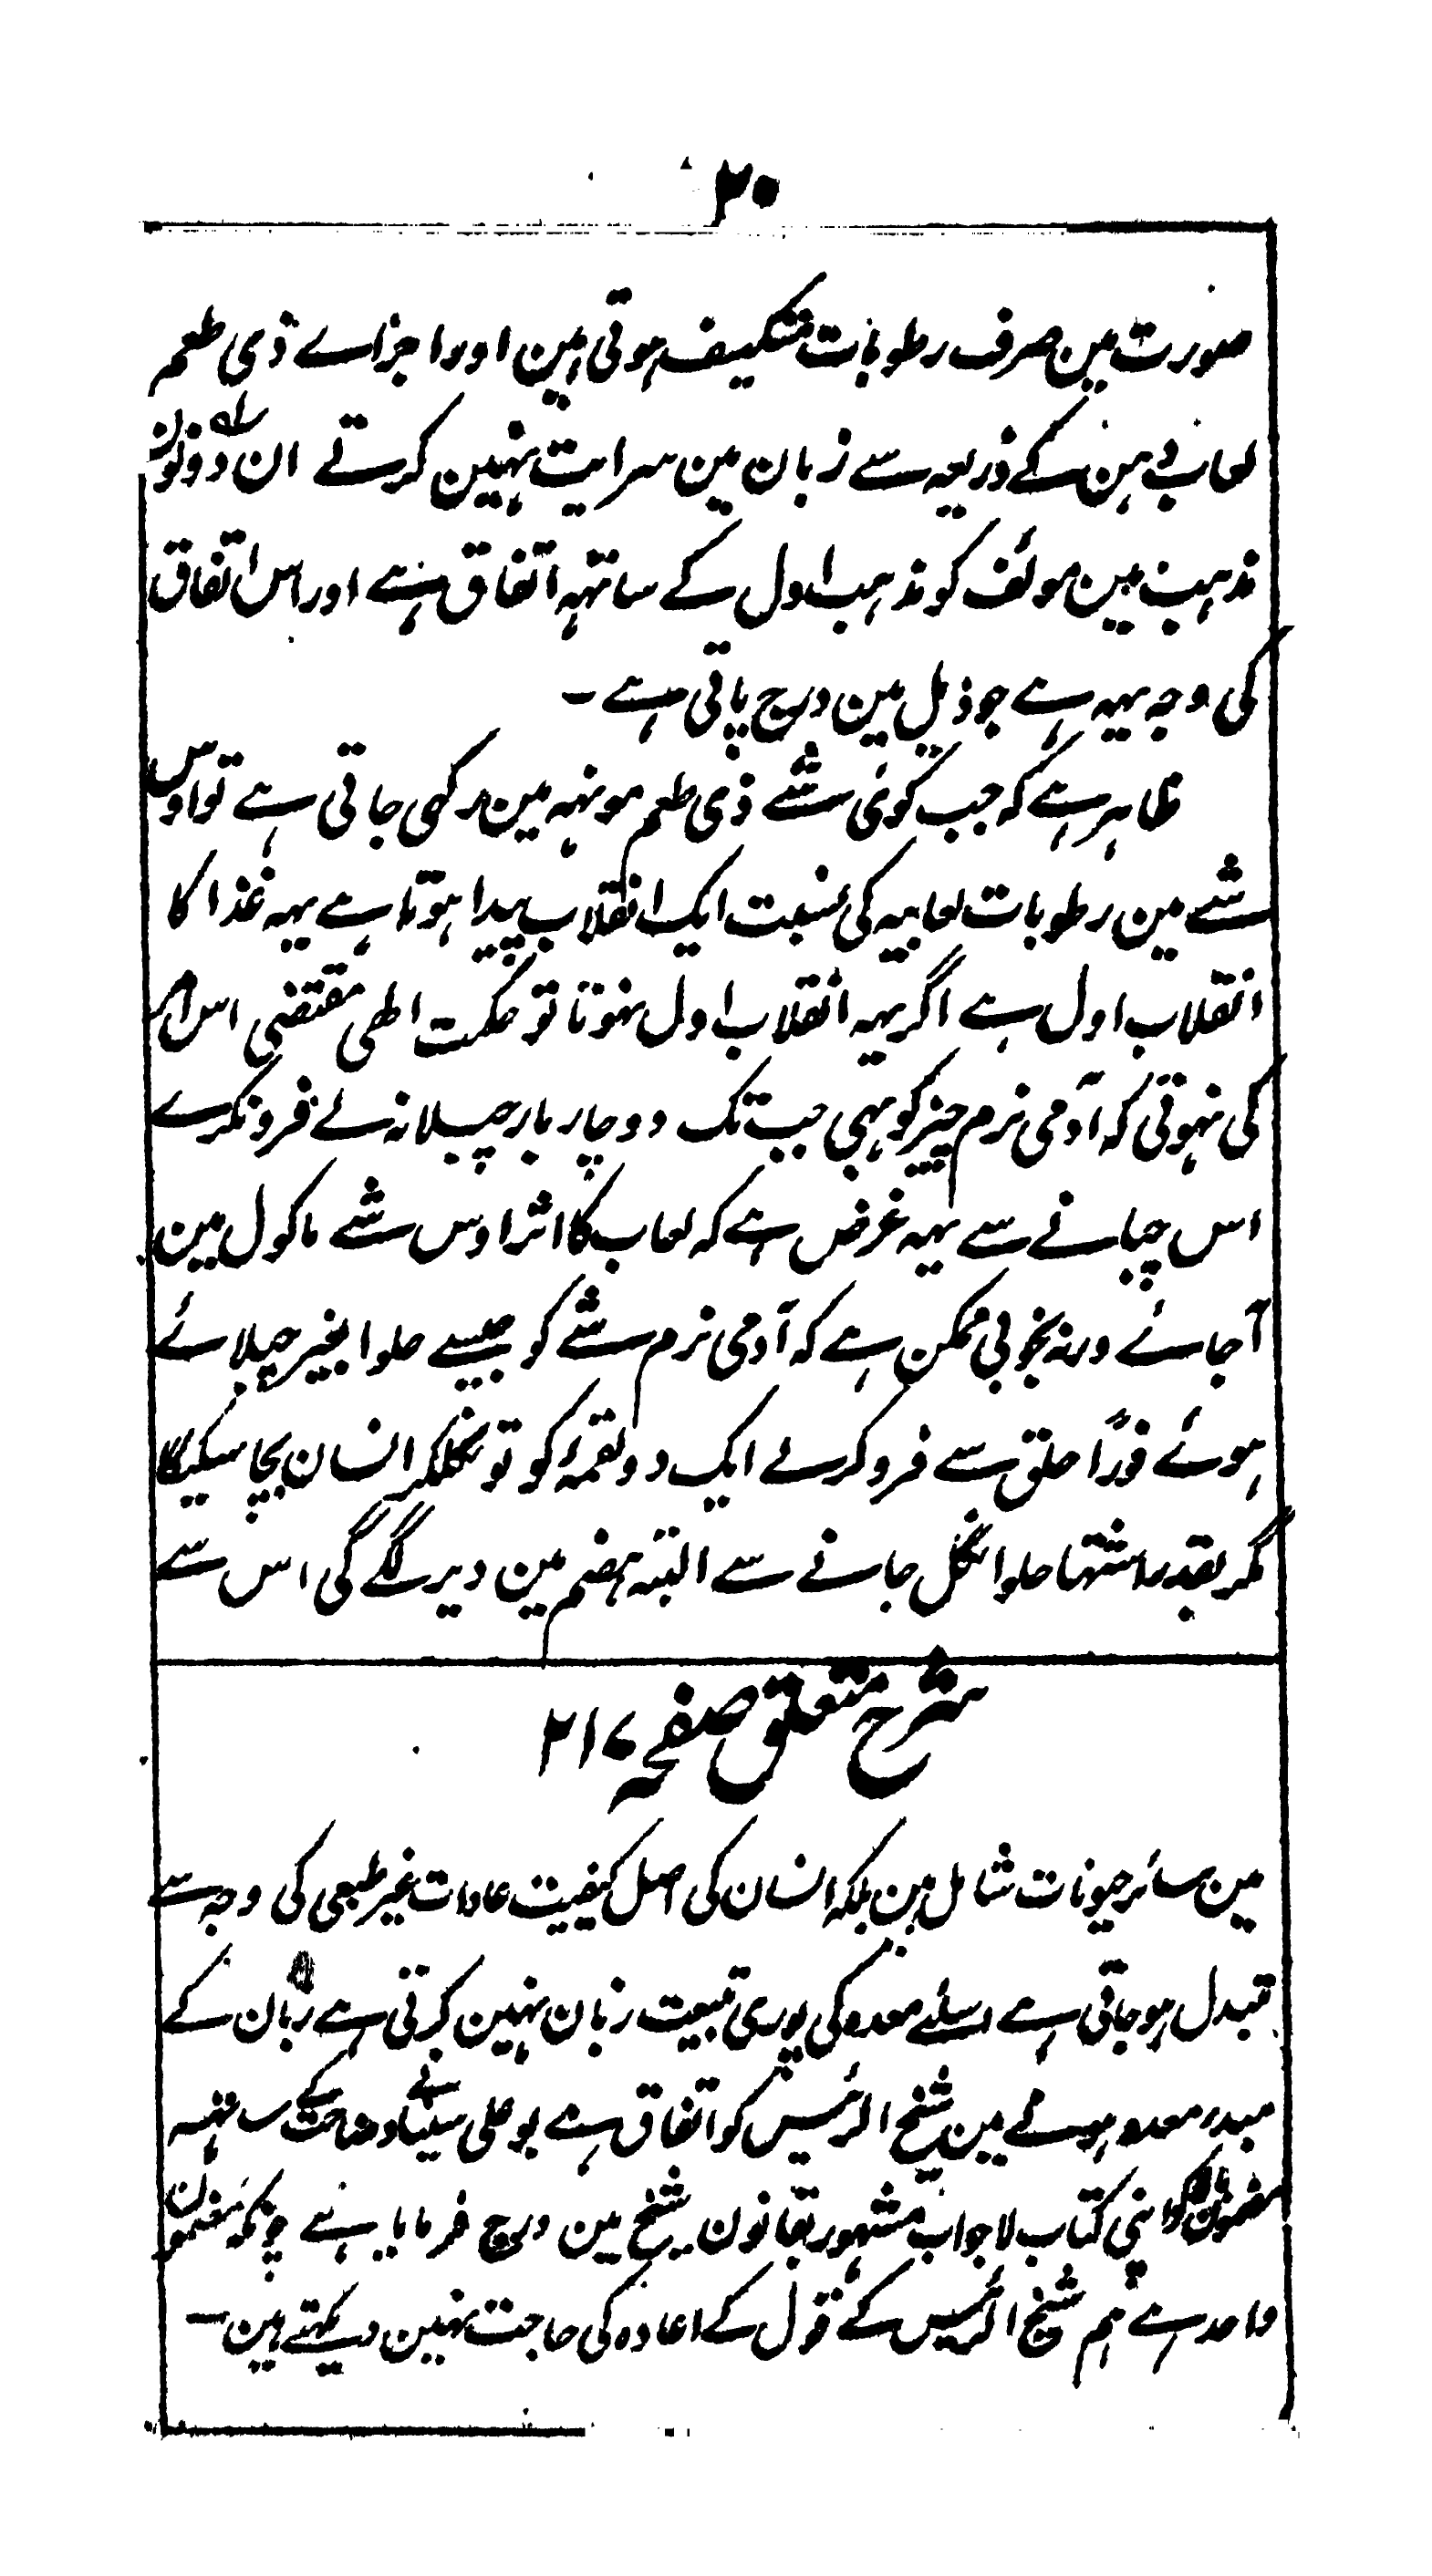 ۲۰
صورت مین صرف رطوبات متکیف ہوتی ہین اور اجزاے ذی طعم
لعاب دہن کے ذریعہ سے زبان مین سرایت نہین کرتے ان دونون
مذہب مین مولف کو مذہب اول کے ساتہہ اتفاق ہے اور اس اتفاق
کی وجہ یہہ ہے جو ذیل مین درج پاتی ہے ۔
ظاہر ہے کہ جب کوئی شے ذی طعم مونہہ مین رکھی جاتی ہے تو اوس
شے مین رطوبات لعابیہ کی نسبت ایک انقلاب پیدا ہوتا ہے یہہ غذا کا
انقلاب اول ہے اگر یہہ انقلاب اول نہوتا تو حکمت الٰھی مقتضی اس امر
کی نہوتی کہ آدمی نرم چیز کو بھی جب تک دو چار بار چبلا نہ لے فرو نکرے
اس چبانے سے یہہ غرض ہے کہ لعاب کا اثر اوس شے ماکول مین
آجاے ورنہ بخوبی ممکن ہے کہ آدمی نرم شے کو جیسے حلوا بغیر چبلائے
ہوئے فورًا حلق سے فرو کرلے ایک دو لقمہ کو تو نگلکر انسان بچا سکیگا
مگر بقدر اشتہا حلوا نگل جانے سے البتہ ہضم مین دیر لگے گی اس سے
شرح متعلق صفحہ ۲۱۷
مین سائر حیونات شامل ہین بلکہ انسان کی اصل کیفیت عادات غیر طبعی کی وجہ سے
تبدل ہوجاتی ہے اسلئے معدہ کی پوری تبعیت زبان نہین کرتی ہے زبان کے
مبدر معدہ ہونے مین شیخ الرئیس کو اتفاق ہے بو علی سینا نے وضاحت کے ساتہہ
مضمون کو اپنی کتاب لاجواب مشہور بقانون شیخ مین درج فرمایا ہے چونکہ مضمون
واحد ہے ہم شیخ الرئیس کے قول کے اعادہ کی حاجت نہین دیکہتے ہین ۔